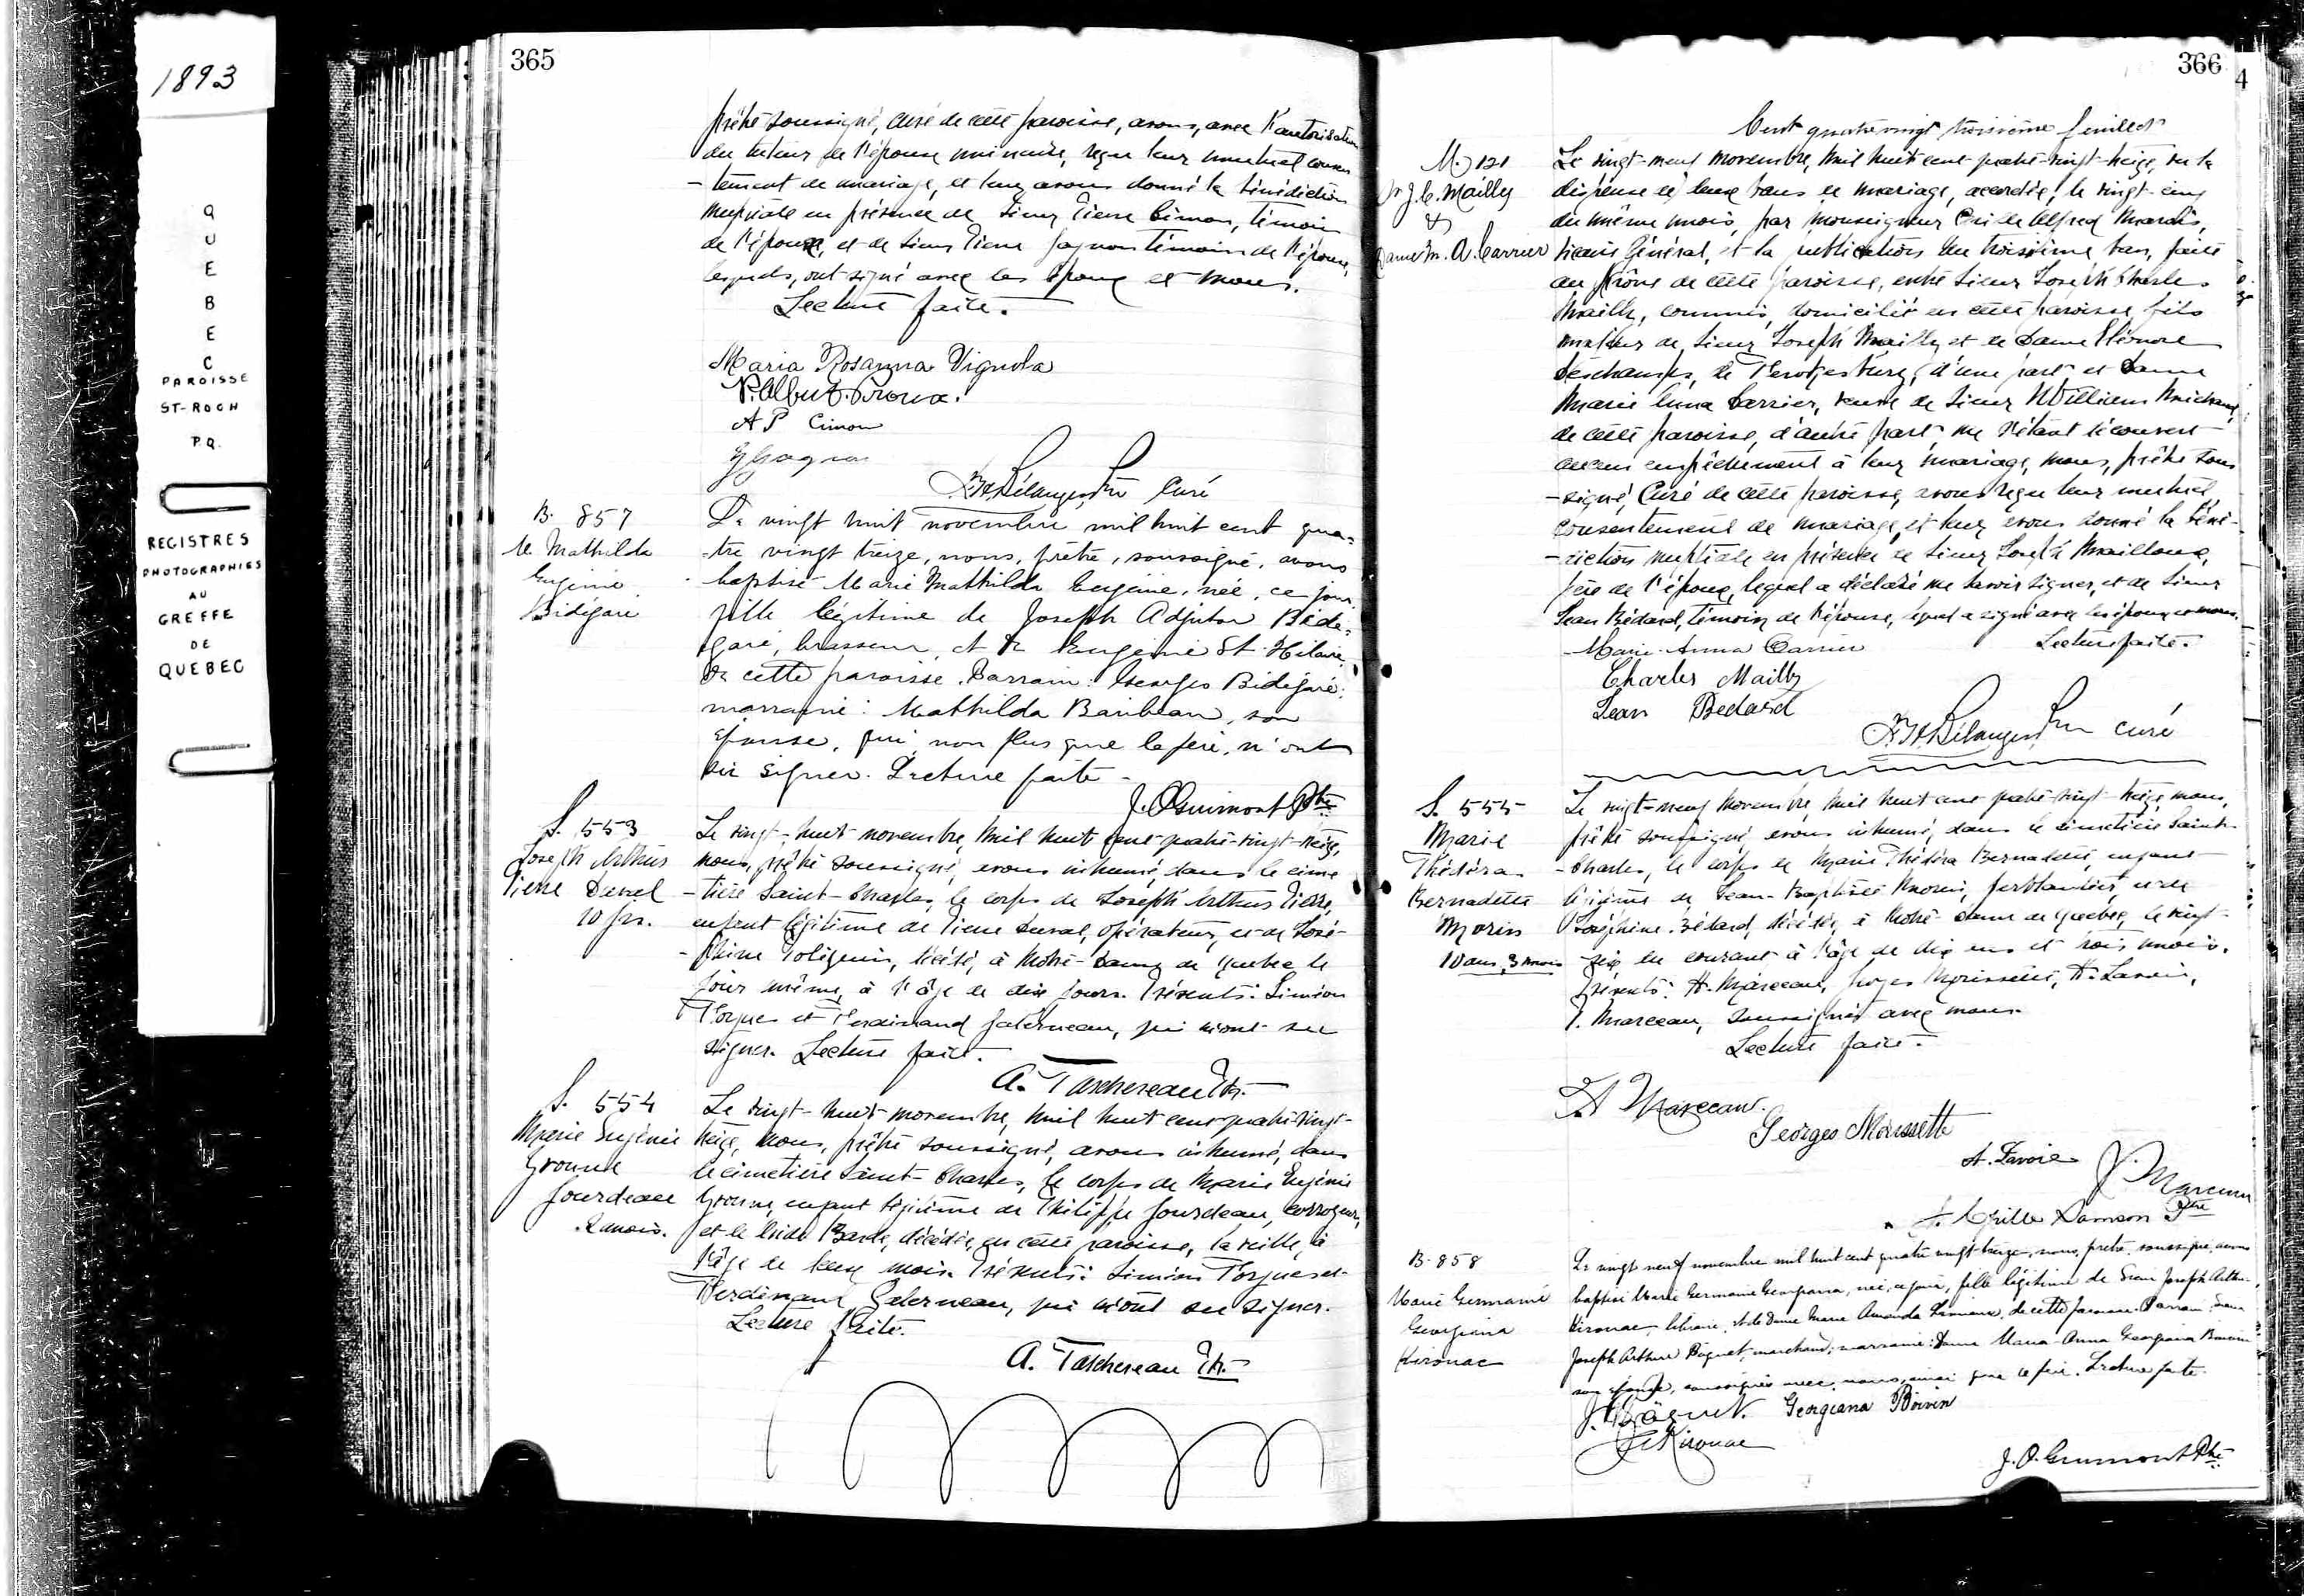 1893
QUEBEC
PAROISSE
ST-ROCH
P.Q.
REGISTRES
PHOTOGRAPHIES
AU
GREFFE
DE
QUEBEC
365
prêtre soussigné, curé de cette paroisse, avons, avec l'autorisation
du tuteur de l'épouse mineure, reçu leur mutuel consen
-tement de mariage, et leur avons donné la bénédiction
nuptiale en présence de Sieur Pierre Cimon, témoin
de l'époux, et de Sieur Pierre Gagnon témoin de l'épouse,
lesquels, ont signé avec les époux et nous.
Lecture faite.
Maria Rosanna Vignola
P. Albert Proux.
A P Cimon
G Gagnon
Bélanger, Ptre Curé
B. 857
M. Mathilda
Eugénie
Bidégaré
Le vingt huit novembre mil huit cent qua-
-tre vingt treize, nous, prêtre, soussigné, avons
baptisé Marie Mathilda Eugénie, née, ce jour,
fille légitime de Joseph Adjutor Bidé-
garé, brasseur, et de Eugénie St-Hilaire,
de cette paroisse. Parrain: Georges Bidégaré;
marraine: Mathilda Baribeau, son
épouse, qui, non plus que le père, n'ont
su signer. Lecture faite.
J. O. Guimont Ptre
S. 553
Joseph Arthur
Pierre Duval
10 jrs.
Le vingt-huit novembre, mil huit cent quatre-vingt-treize,
nous, prêtre soussigné, avons inhumé, dans le cime
-tière Saint-Charles, le corps de Joseph Arthur Pierre,
enfant légitime de Pierre Duval, opérateur, et de José-
-phine Poliquin, décédé, à Notre-Dame de Quebec le
jour même, à l'âge de dix jours. Présents: Siméon
Forgues et Ferdinand Galerneau, qui n'ont su
signer. Lecture faite.
A. Taschereau Ptr.
S. 554
Marie Eugénie
Yvonne
Jourdeau
2 mois.
Le vingt-huit novembre, mil huit cent quatre-vingt-
treize, nous, prêtre soussigné, avons inhumé, dans
le cimetière Saint-Charles, le corps de Marie Eugénie
Yvonne, enfant légitime de Philippe Jourdeau, corroyeur,
et de Barbe, décédée, en cette paroisse, la veille, à
l'âge de deux mois. Présents: Siméon Forgues et
Ferdinand Galerneau, qui n'ont su signer.
Lecture faite.
A. Taschereau Ptr.
366
4
Cent quatre vingt troisième feuillet
M. 121
Sr J. C. Mailly
&
Dame M. A. Carrier
Le vingt-neuf novembre, mil huit cent quatre-vingt-treize, vu la
dispense de deux bans de mariage, accordée, le vingt-cinq
du même mois, par Monseigneur Cyrille Alfred Marois,
Vicaire Général, et la publication du troisième ban, faite
au prône de cette paroisse, entre Sieur Joseph Charles
Mailly, commis, domicilié en cette paroisse, fils
majeur de Sieur Joseph Mailly et de Dame Eléonore
Deschamps, de d'une part et Dame
Marie Anna Carrier, veuve de Sieur William Michaud,
de cette paroisse, d'autre part, ne s'étant découvert
aucun empêchement à leur mariage, nous, prêtre sous
-signé, Curé de cette paroisse, avons reçu leur mutuel
consentement de mariage, et leur avons donné la béné-
-diction nuptiale en présence de Sieur Joseph Mailloux,
père de l'époux, lequel a déclaré ne savoir signer, et de Sieur
Jean Bédard, témoin de l'épouse, lequel a signé avec les époux et nous.
Lecture faite.
Marie-Anna Carrier
Charles Mailly
Jean Bedard
Bélanger, Ptre curé
S. 555
Marie
Thédéra
Bernadette
Morin
10 ans, 3 mois
Le vingt-neuf novembre, mil huit cent quatre-vingt-treize, nous,
prêtre soussigné, avons inhumé, dans le cimetière Saint-
-Charles, le corps de Marie Thédéra Bernadette, enfant
légitime de Jean-Baptiste Morin, ferblantier, et de
Joséphine Bédard, décédée, à Notre-Dame de Quebec, le vingt-
-six du courant à l'âge de dix ans et trois mois.
Présents: H. Marceau, Georges Morissette, A. Lavoie,
J. Marceau, soussignés avec nous.
Lecture faite.
H Marceau.
Georges Morissette
A. Lavoie
J. Marceau
F. Cyrille Samson Ptre
B. 858
Marie Germaine
Georgiana
Kirouac
Le vingt neuf novembre mil huit cent quatre vingt-treize, nous, prêtre, soussigné, avons
baptisé Marie Germaine Georgiana, née, ce jour, fille légitime de Sieur Joseph Arthur
Kirouac, libraire, et de Dame Marie Amanda de cette paroisse. Parrain: Sieur
Joseph Arthur Paquet, marchand; marraine: Dame Maria-Anna Georgiana Boivin
son épouse, soussignés avec nous, ainsi que le père. Lecture faite.
J. A. Paquet. Georgiana Boivin
J A Kirouac
J. O. Guimont Ptre